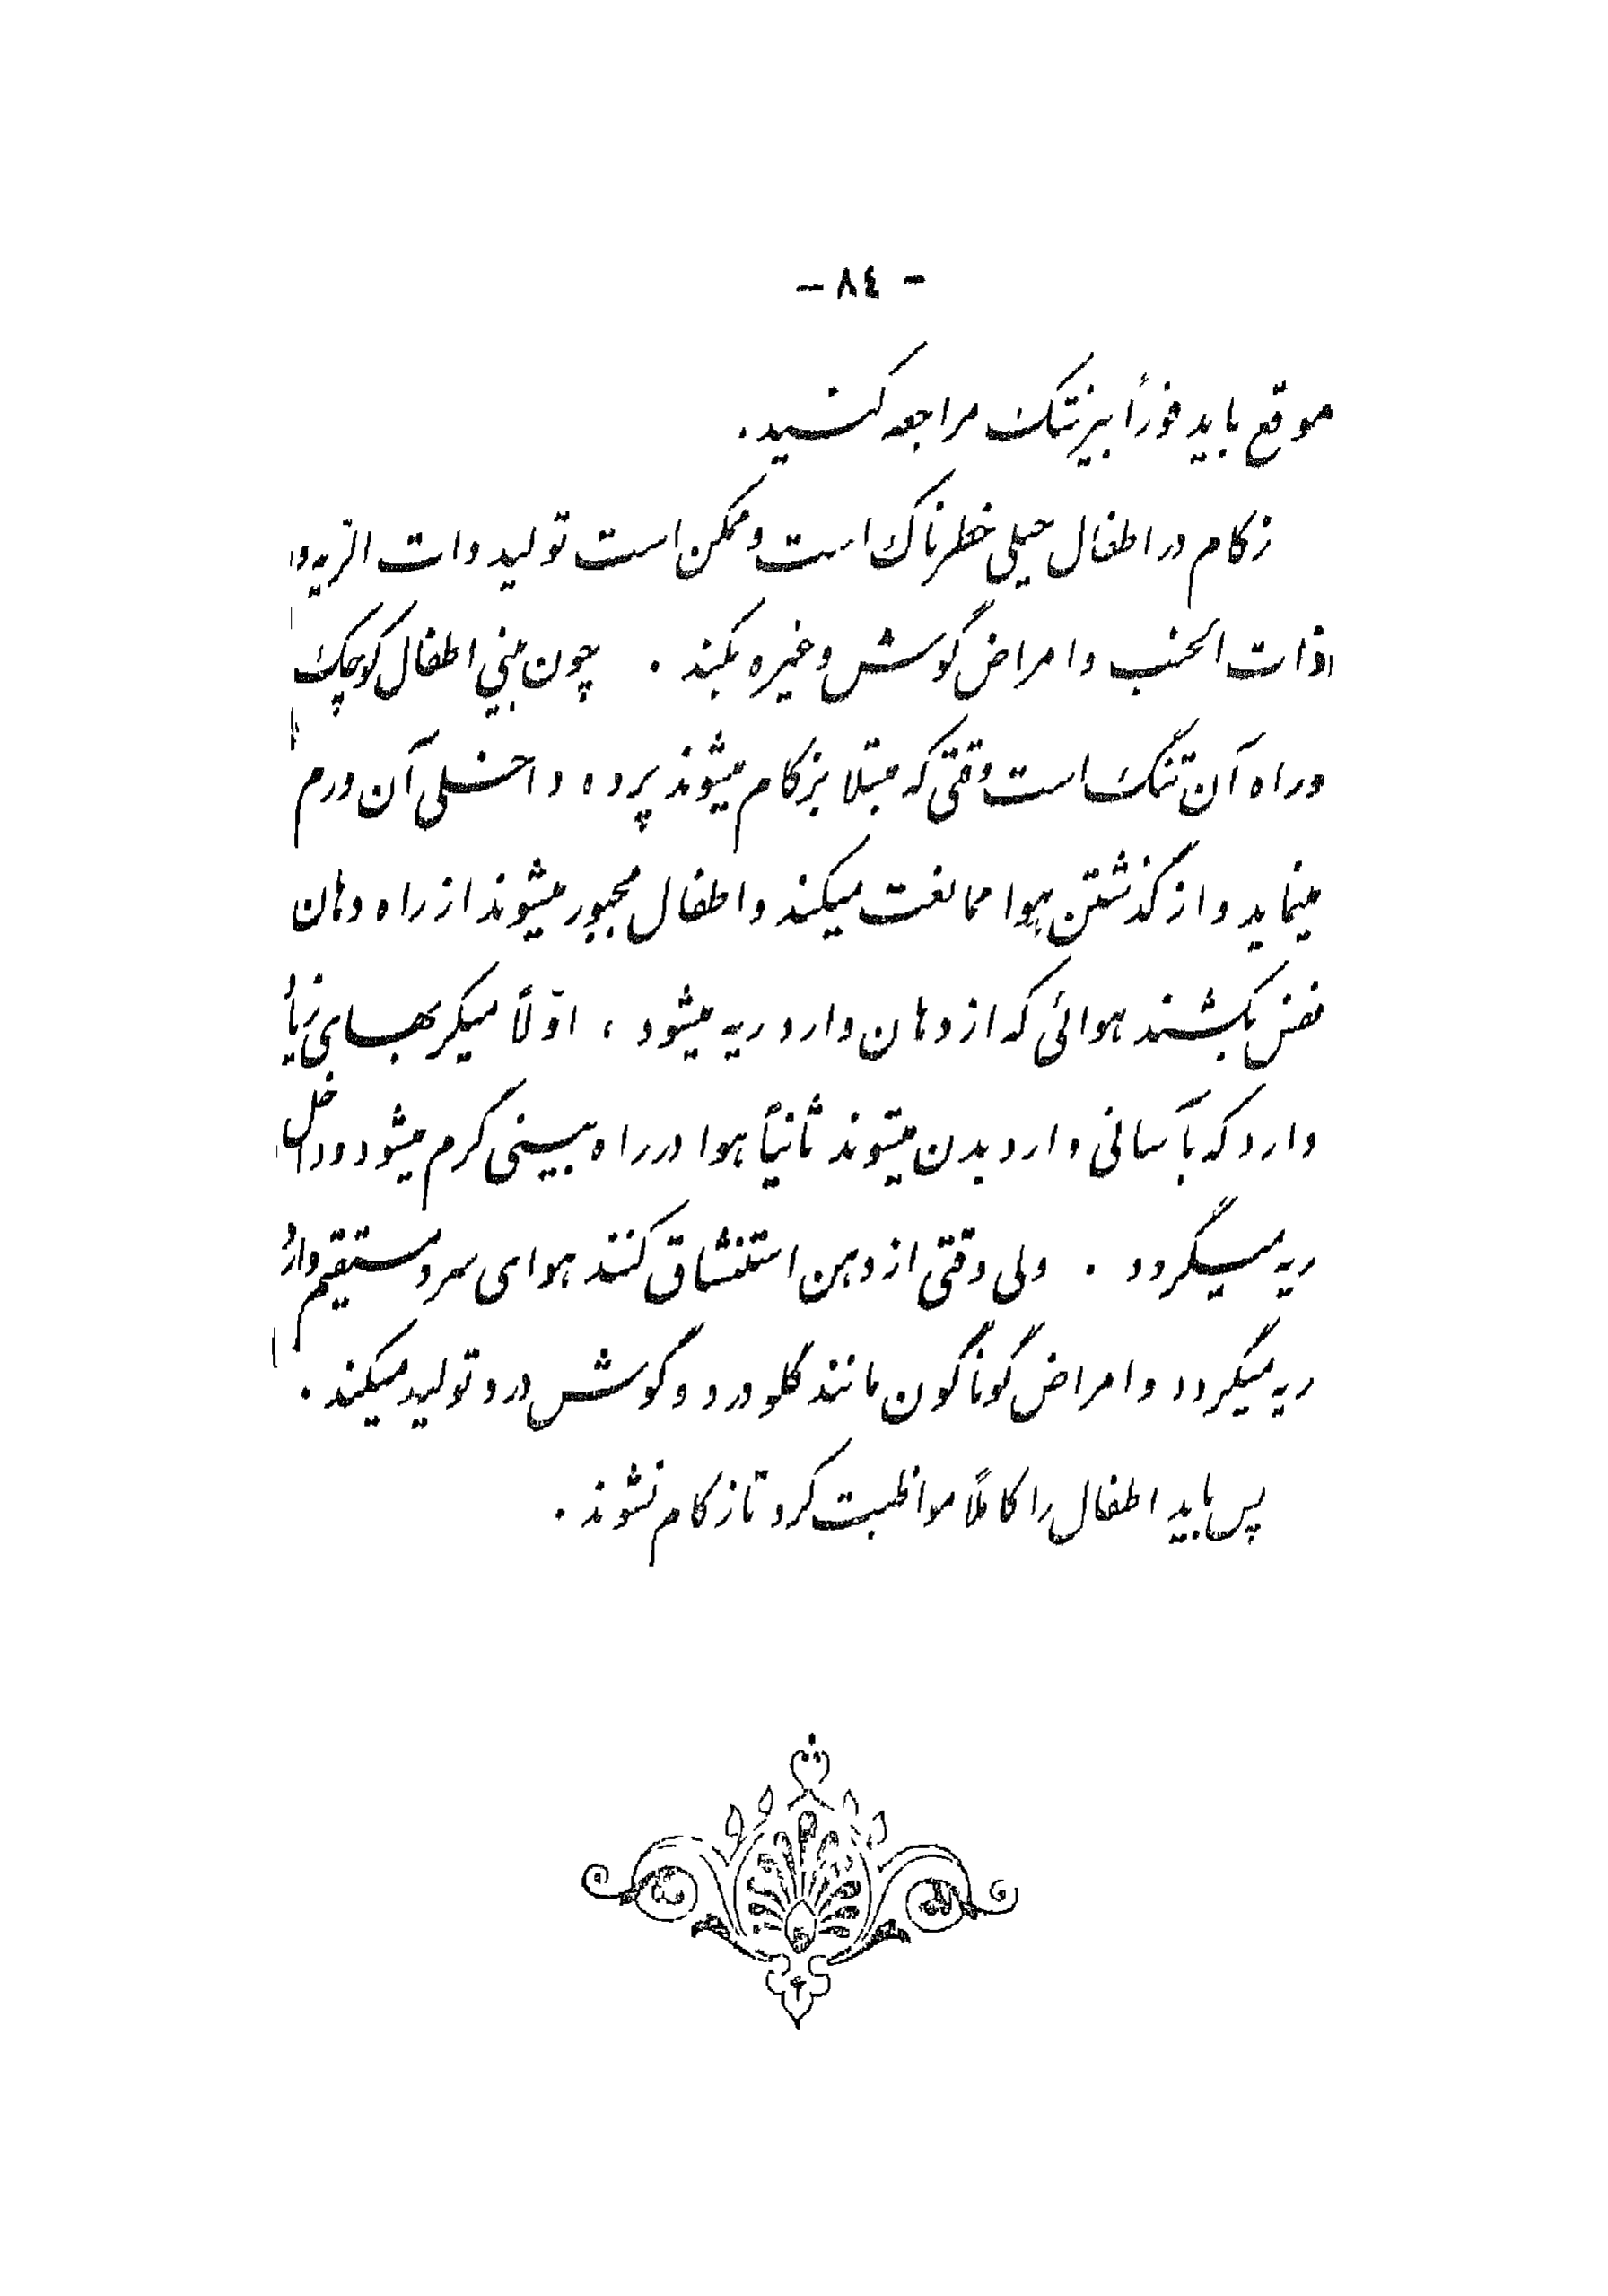 - ٨٤ -
موقع باید فوراً بپزشک مراجعه کنید.
زکام در اطفال خیلی خطرناک است و ممکن است تولید ذات الریه و
ذات الجنب و امراض گوش و غیره بکند . چون بینی اطفال کوچک
و راه آن تنگ است وقتی که مبتلا بزکام میشوند پرده داخلی آن ورم
مینماید و از گذشتن هوا ممانعت میکند و اطفال مجبور میشوند از راه دهان
نفس بکشند هوائی که از دهان وارد ریه میشود ، اوّلاً میکربهای زیاد
دارد که بآسانی وارد بدن میشوند ثانیاً هوا در راه بینی گرم میشود و داخل
ریه میگردد . ولی وقتی از دهن استنشاق کنند هوای سرد مستقیم وارد
ریه میگردد و امراض گوناگون مانند گلو درد و گوش درد تولید میکند .
پس باید اطفال را کاملاً مواظبت کرد تا زکام نشوند .